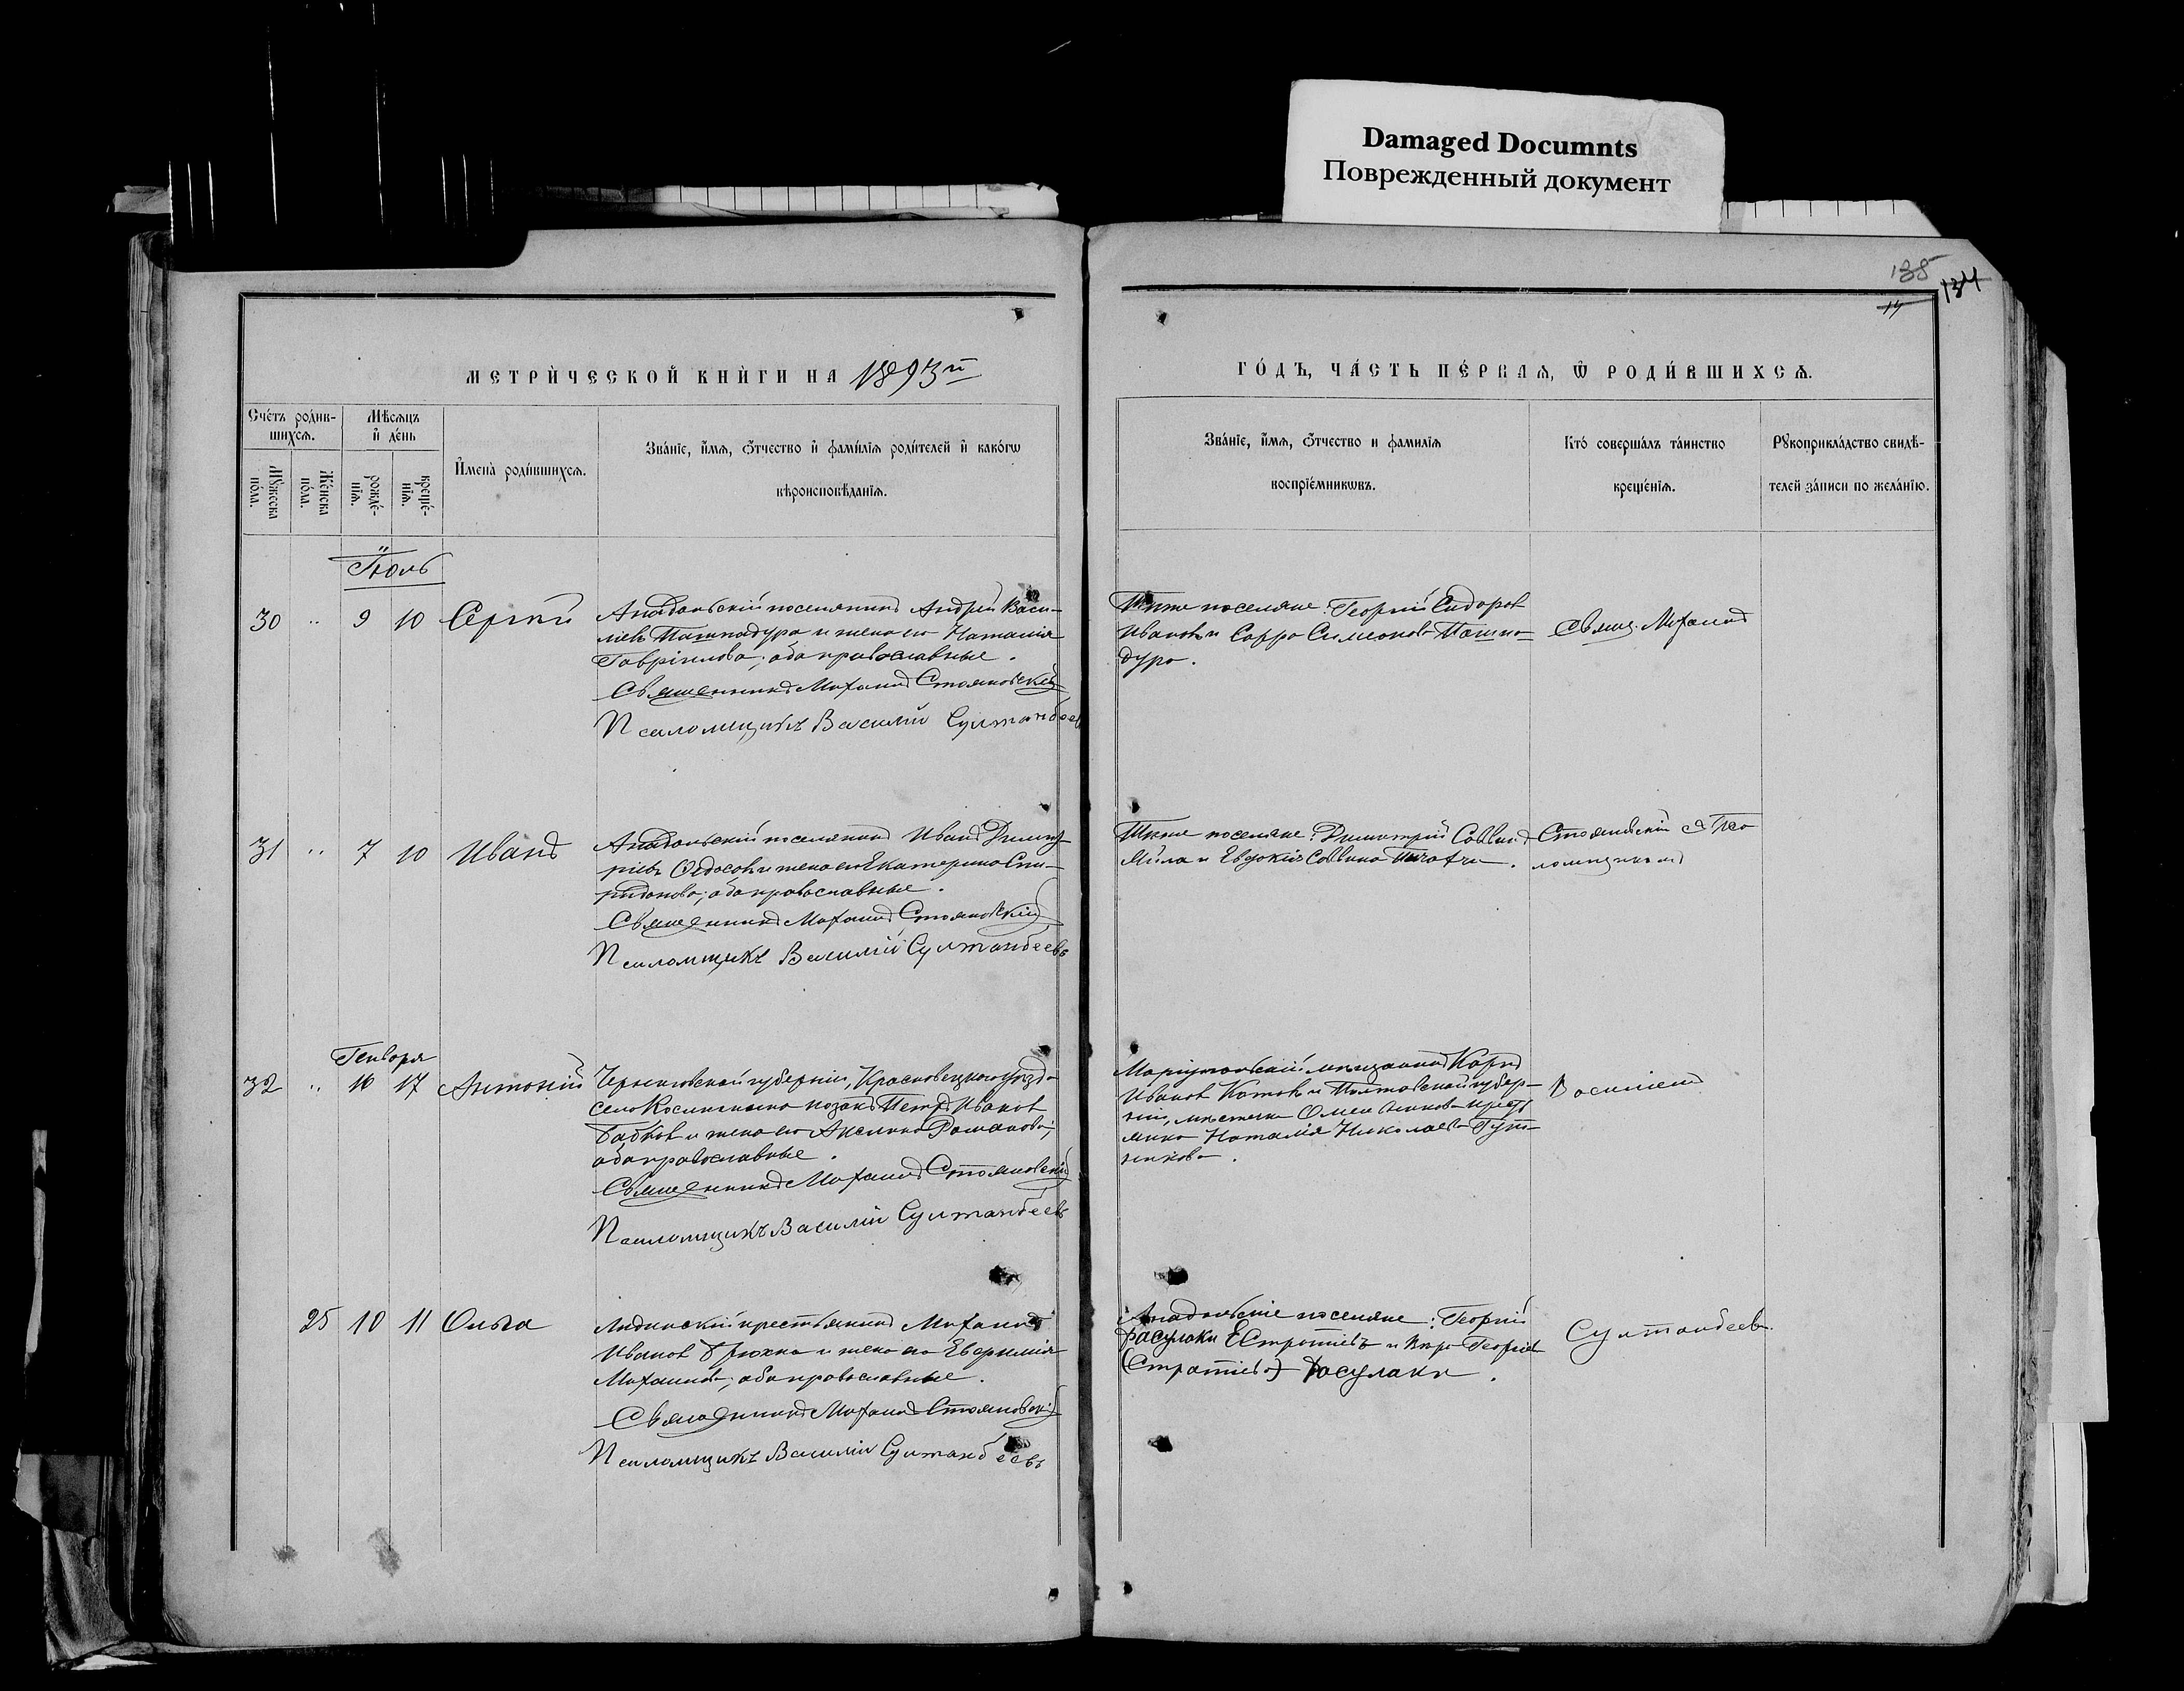 Damaged Documnts
Поврежденный документ
135
134
14
МЕТРИ́ЧЕСКОЙ КНИ́ГИ НА 1893й
ГО́ДЪ, ЧА́СТЬ ПЕ́РВАѦ, Ѡ҆ РОДИ́ВШИХСѦ.
Сче́тъ роди́в-
шихсѧ.
Мѣ́сѧцъ
и҆ де́нь
И҆мена̀ роди́вшихсѧ.
Зва́нїе, и҆́мѧ, ѻ҆́тчество и҆ фами́лїѧ роди́телей и҆ како́гѡ
вѣроисповѣ́данїѧ.
Мꙋ́жеска
по́ла.
Же́нска
по́ла.
рожде́-
нїѧ.
креще́-
нїѧ.
Зва́нїе, и҆́мѧ, ѻ҆́тчество и фами́лїѧ
воспрїе́мникѡвъ.
Кто̀ соверша́лъ та́инство
креще́нїѧ.
Рꙋкоприкла́дство свидѣ́-
телей за́писи по жела́нїю.
Іюль
30 " 9 10 Сергій
Анадольскій поселянинъ Андрей Васи-
ліевъ Пашпадура и жена его Наталія
Гавріилова; оба православные.
Священникъ Михаилъ Стояновскій
Псаломщикъ Василій Султанбеевъ
Тѣже поселяне: Георгій Сидоров
Иванов и Сарра Симеонова Пашпа-
дура.
Свящ. Михаилъ
31 " 7 10 Иванъ
Анадольскій поселянинъ Иванъ Димит-
ріевъ Федосов и жена его Екатерина Спи-
ридонова; оба православные.
Священникъ Михаилъ Стояновскій
Псаломщикъ Василій Султанбеевъ
Тѣже поселяне: Димитрій Саввинъ
и Евдокія Саввина
Стояновскій съ Пса
ломщикомъ
Генваря
32 " 16 17 Антоній
Черниговской губерніи, уѣзда
села козакъ Петръ Иванов
Бабков и жена его Акилина Романова;
оба православные.
Священникъ Михаилъ Стояновскій
Псаломщикъ Василій Султанбеевъ
Маріупольскій мещанинъ Карпъ
Иванов Котов и Полтавской губер-
ніи, местечка кресть
янка Наталія Николаева
Василіем
25 10 11 Ольга
крестьянинъ Михаилъ
Иванов и жена его
Михаилова; оба православные.
Священникъ Михаилъ Стояновскій
Псаломщикъ Василій Султанбеевъ
Анадольскіе поселяне: Георгій
Евстратіевъ и Кира Георгіев
(Стратіева) Фасулаки.
Султанбеевъ